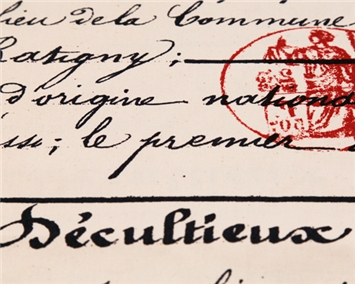 lieu de la Commune
Ratigny;
d'origine nationa
le premier
Décultieux